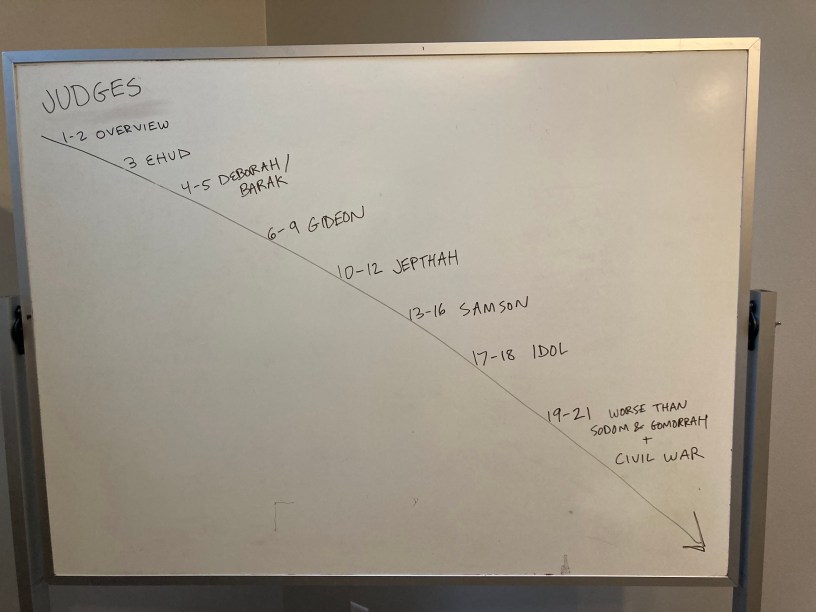 JUDGES
1-2 OVERVIEW
3 EHUD
4-5 DEBORAH/
BARAK
6-9 GIDEON
10-12 JEPTHAH
13-16 SAMSON
17-18 IDOL
19-21 WORSE THAN
SODOM & GOMORRAH
+
CIVIL WAR